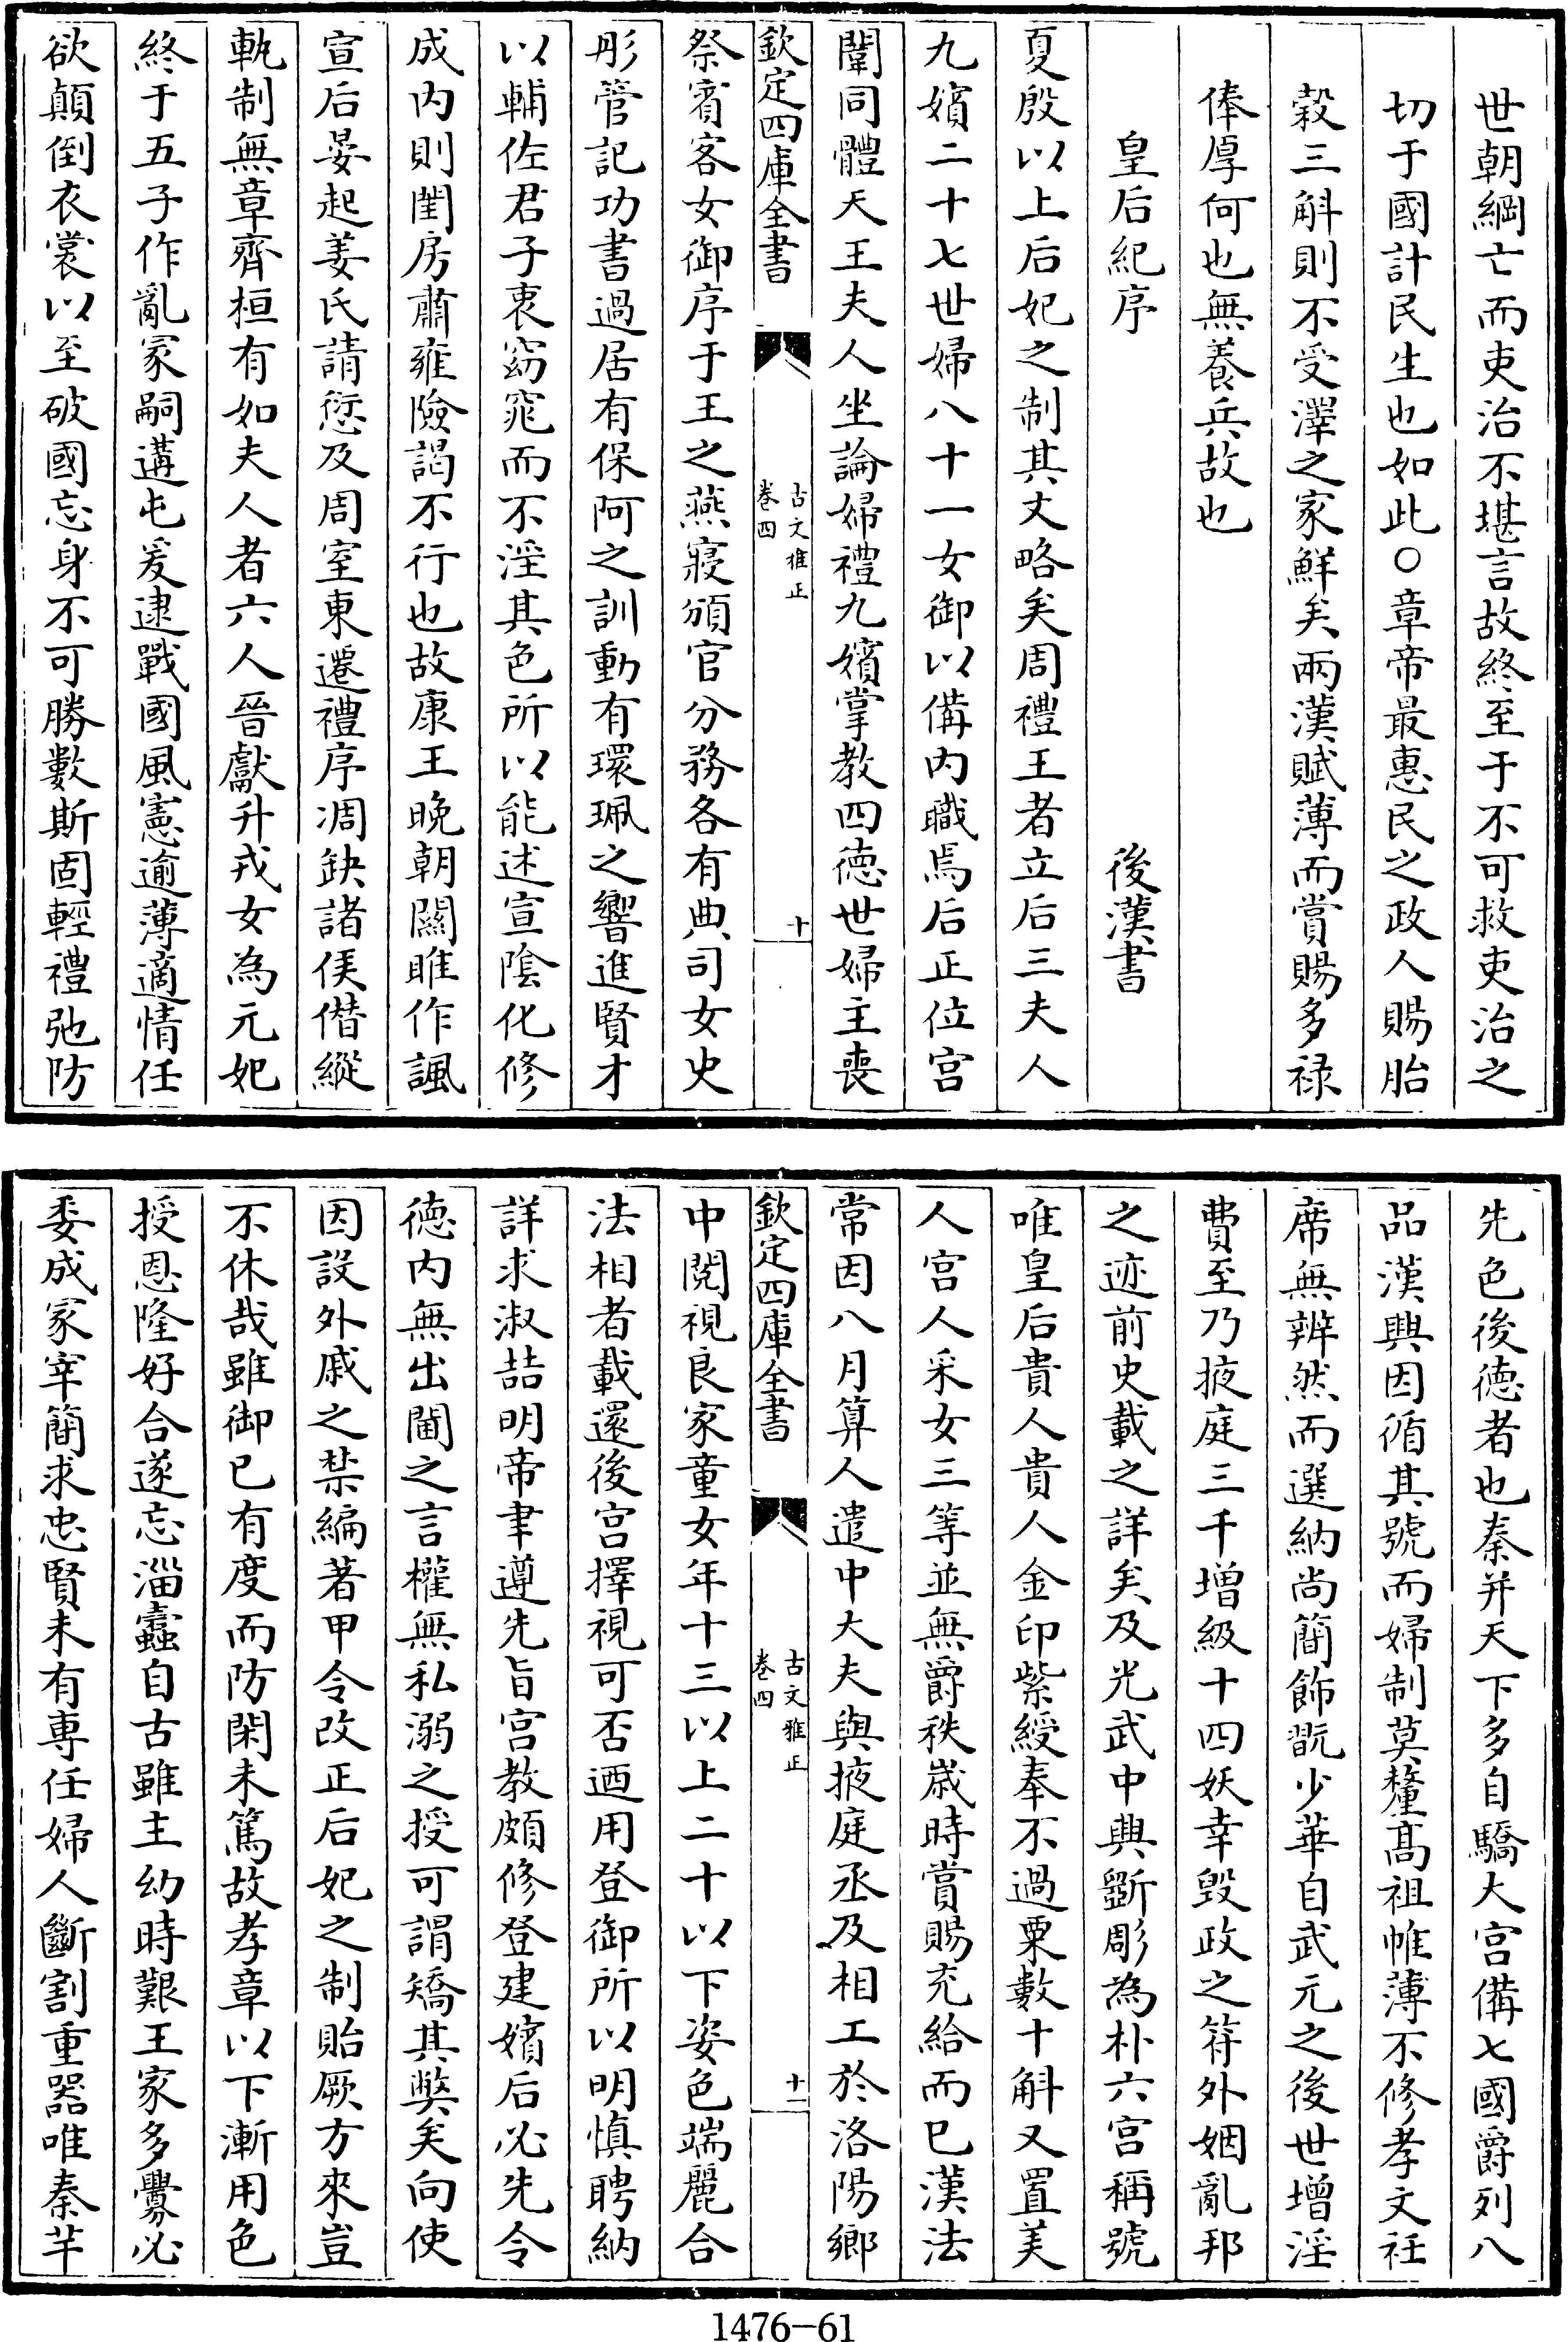 世朝綱亡而吏治不堪言故終至于不可救吏治之
切于國計民生也如此○章帝最惠民之政人賜胎
穀三斛則不受澤之家鮮矣兩漢賦薄而賞賜多祿
俸厚何也無養兵故也
皇后紀序　　後漢書
夏殷以上后妃之制其文略矣周禮王者立后三夫人
九嬪二十七世婦八十一女御以備内職焉后正位宫
闈同體天王夫人坐論婦禮九嬪掌教四徳世婦主喪
欽定四庫全書
古文雅正
卷四
十
祭賓客女御序于王之燕寢頒官分務各有典司女史
彤管記功書過居有保阿之訓動有環珮之響進賢才
以輔佐君子哀窈窕而不淫其色所以能述宣陰化修
成内則閨房肅雍險謁不行也故康王晚朝關雎作諷
宣后晏起姜氏請愆及周室東遷禮序凋缺諸侯僣縱
軌制無章齊桓有如夫人者六人晉獻升戎女為元妃
終于五子作亂冢嗣遘屯爰逮戰國風憲逾薄適情任
欲顛倒衣裳以至破國忘身不可勝數斯固輕禮弛防
先色後徳者也秦并天下多自驕大宫備七國爵列八
品漢興因循其號而婦制莫釐髙祖帷薄不修孝文衽
席無辨然而選納尚簡飾翫少華自武元之後世增淫
費至乃掖庭三千增級十四妖幸毁政之符外姻亂邦
之迹前史載之詳矣及光武中興斵彫為朴六宫稱號
唯皇后貴人貴人金印紫綬奉不過粟數十斛又置美
人宫人采女三等並無爵秩嵗時賞賜充給而已漢法
常因八月算人遣中大夫與掖庭丞及相工於洛陽鄉
欽定四庫全書
古文雅正
卷四
十一
中閲視良家童女年十三以上二十以下姿色端麗合
法相者載還後宫擇視可否迺用登御所以明慎聘納
詳求淑喆明帝聿遵先旨宫教頗修登建嬪后必先令
徳内無出閫之言權無私溺之授可謂矯其獘矣向使
因設外戚之禁編著甲令改正后妃之制貽厥方來豈
不休哉雖御已有度而防閑未篤故孝章以下漸用色
授恩隆好合遂忘淄蠧自古雖主幼時艱王家多釁必
委成冢宰簡求忠賢未有専任婦人斷割重器唯秦芊
1476-61